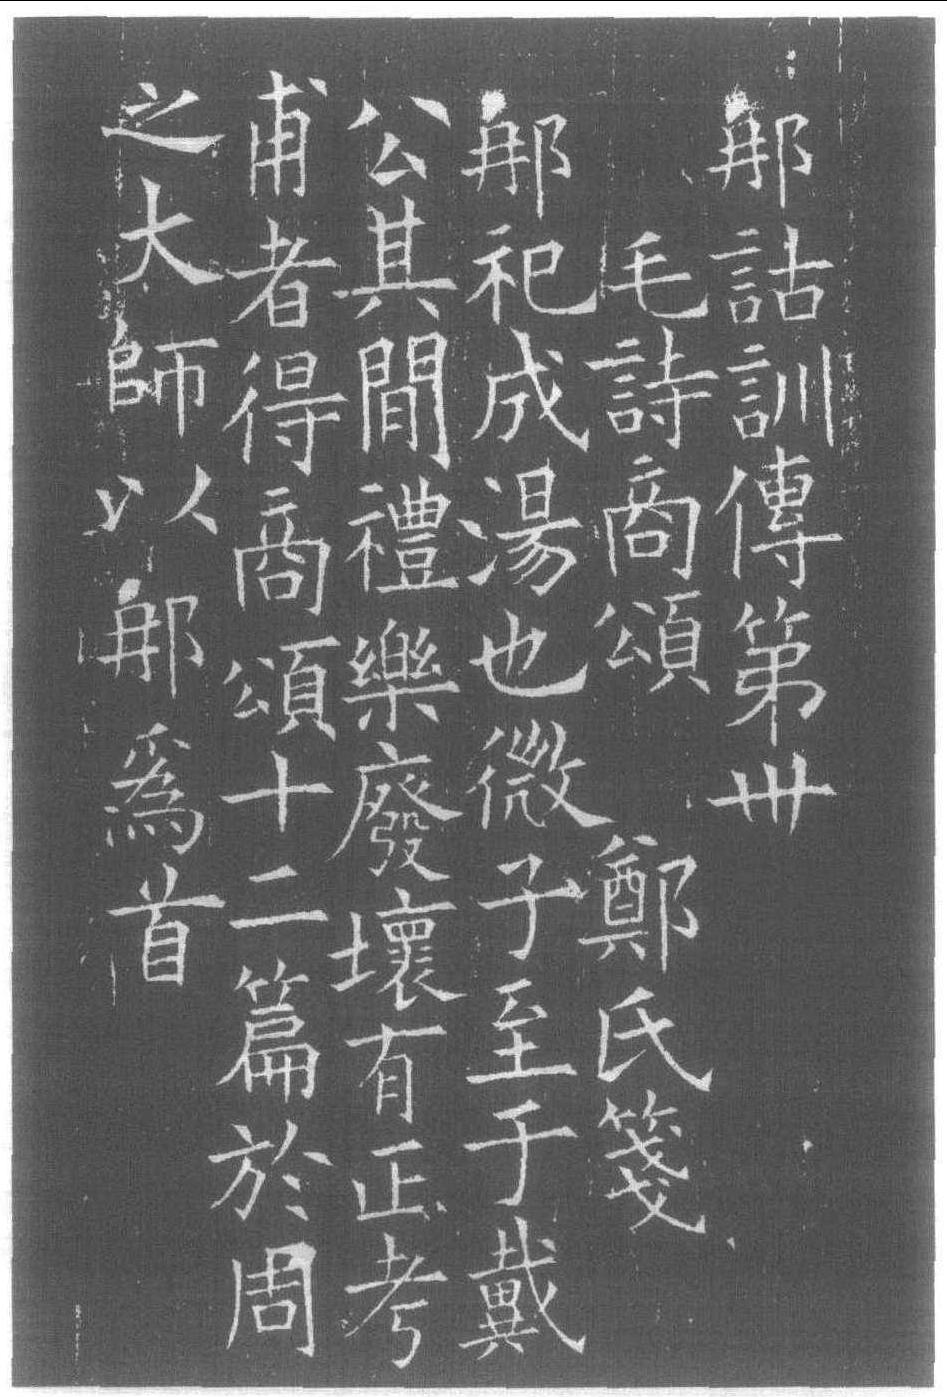 那詁訓傳第卅
毛詩商頌 鄭氏箋
那祀成湯也微子至于戴
公其間禮樂廢壞有正考
甫者得商頌十二篇於周
之大師以那為首